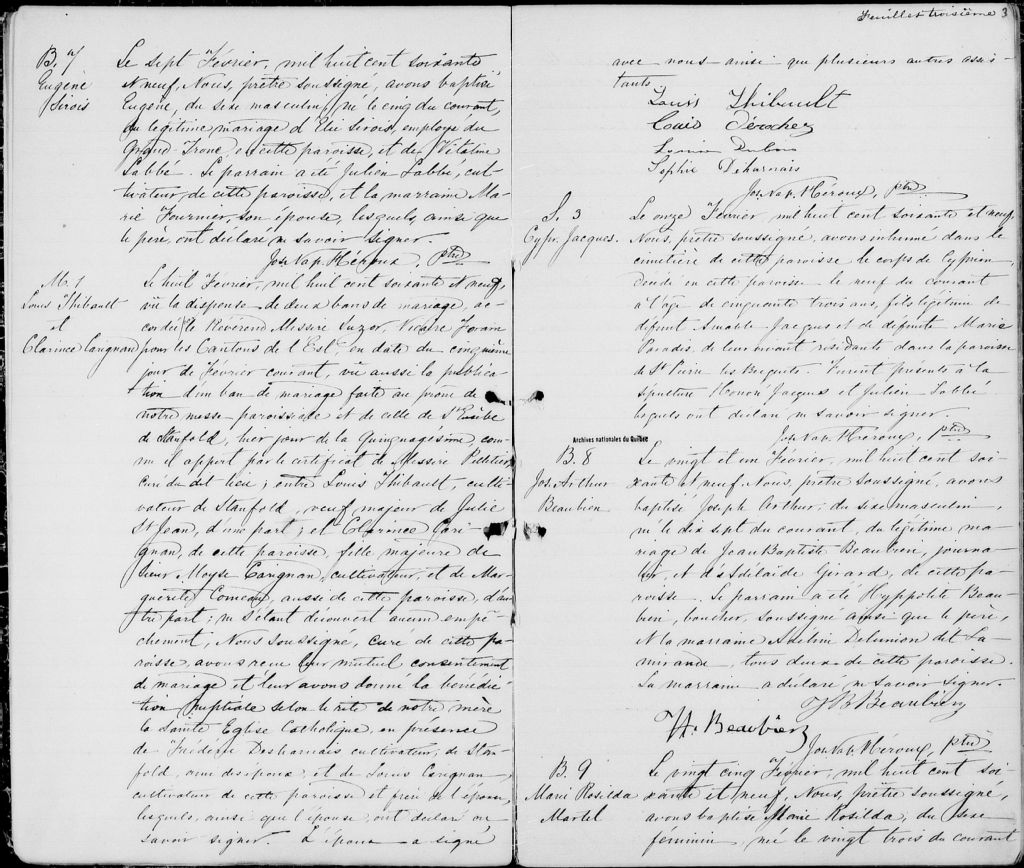 B. 7
Eugène
Sirois
Le sept Février, mil huit cent soixante
et neuf, Nous, prêtre soussigné, avons baptisé
Eugène, du sexe masculin, né le cinq du courant,
du légitime mariage d'Elie Sirois, employé du
Grand-Tronc, en cette paroisse, et de Vitaline
Labbé. Le parrain a été Julien Labbé, cul-
tivateur, de cette paroisse, et la marraine Ma-
rie Fournier, son épouse, lesquels, ainsi que
le père, ont déclaré ne savoir signer.
Jos. Nap. Héroux, Ptre
M. 1
Louis Thibault
et
Clarince Carignan
Le huit Février, mil huit cent soixante et neuf,
vu la dispense de deux bans de mariage, ac-
cordée le Révérend Messire Luzor, Vicaire Forain
pour les Cantons de l'Est, en date du cinquième
jour de Février courant, vu aussi la publica-
tion d'un ban de mariage faite au prône de
notre messe paroissiale et de celle de St Eusèbe
de Stanfold, hier jour de la Quinquagésime, com-
me il appert par le certificat de Messire Pelletier,
curé du dit lieu; entre Louis Thibault, culti-
vateur de Stanfold, veuf majeur de Julie
St Jean, d'une part; et Clarince Cari-
gnan, de cette paroisse, fille majeure de
sieur Moyse Carignan, cultivateur, et de Mar-
guerite Comeau, aussi de cette paroisse, d'au-
tre part; ne s'étant découvert aucun empê-
chement, Nous soussigné, curé de cette pa-
roisse, avons reçu leur mutuel consentement
de mariage et leur avons donné la bénédic-
tion nuptiale selon le rite de notre mère
la Sainte Eglise Catholique, en présence
de Frédéric Desharnais cultivateur, de Stan-
fold, ami de l'époux, et de Louis Carignan,
cultivateur de cette paroisse et frère de l'épouse,
lesquels, ainsi que l'épouse, ont déclaré ne
savoir signer. L'époux a signé
Feuillet troisième 3
avec nous ainsi que plusieurs autres assis-
tants.
Louis Thibault
Louis
Dubois
Sophie Deharnais
Jos. Nap. Héroux, ptre
S. 3
Cypr. Jacques.
Le onze Février, mil huit cent soixante et neuf,
Nous, prêtre soussigné, avons inhumé dans le
cimetière de cette paroisse le corps de Cyprien,
décédé en cette paroisse le neuf du courant
à l'âge de cinquante trois ans, fils légitime de
défunt Amable Jacques et de défunte Marie
Paradis, de leur vivant résidants dans la paroisse
de St Pierre les Becquets. Furent présents à la
sépulture Honoré Jacques et Julien Labbé
lesquels ont déclaré ne savoir signer.
Jos. Nap. Héroux, ptre
Archives nationales du Québec
B. 8
Jos. Arthur
Beaubien
Le vingt et un Février, mil huit cent soi-
xante et neuf, Nous, prêtre soussigné, avons
baptisé Joseph Arthur, du sexe masculin,
né le dix sept du courant, du légitime ma-
riage de Jean Baptiste Beaubien, journa-
lier, et d'Adélaïde Girard, de cette pa-
roisse. Le parrain a été Hyppolite Beau-
bien, boucher, soussigné ainsi que le père,
et la marraine Adeline Delunion dit La-
mirande, tous deux de cette paroisse.
La marraine a déclaré ne savoir signer.
J B Beaubien
H. Beaubien
Jos. Nap. Héroux, Ptre
B. 9
Marie Rosilda
Martel
Le vingt cinq Février, mil huit cent soi-
xante et neuf, Nous, prêtre soussigné,
avons baptisé Marie Rosilda, du sexe
féminin, née le vingt trois du courant